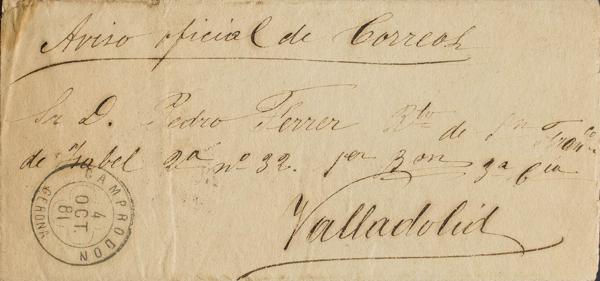 Aviso oficial de Correos
Sr D. Pedro Ferrer Bto de Sn Franco
de Ysabel 2ª nº 32. 1er Bon 3ª Cia
Valladolid
CAMPRODON
4
OCT.
81
GERONA